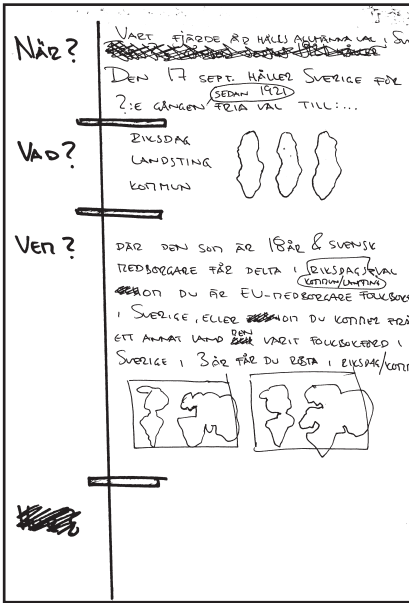 NÄR?
VART FJÄRDE ÅR HÅLLS ALLMÄNNA VAL I SV
DEN 17 SEPT. HÅLLER SVERIGE FÖR
SEDAN 1921
?:E GÅNGEN FRIA VAL TILL:...
VAD?
RIKSDAG
LANDSTING
KOMMUN
VEM?
DÄR DEN SOM ÄR 18 ÅR & SVENSK
MEDBORGARE FÅR DELTA I RIKSDAGSVAL
KOMMUN/LANDSTING
OM DU ÄR EU-MEDBORGARE FOLKBOK
I SVERIGE, ELLER OM DU KOMMER FRÅ
ETT ANNAT LAND MEN VARIT FOLKBOKFÖRD I
SVERIGE I 3 ÅR FÅR DU RÖSTA I RIKSDAG/KOMM